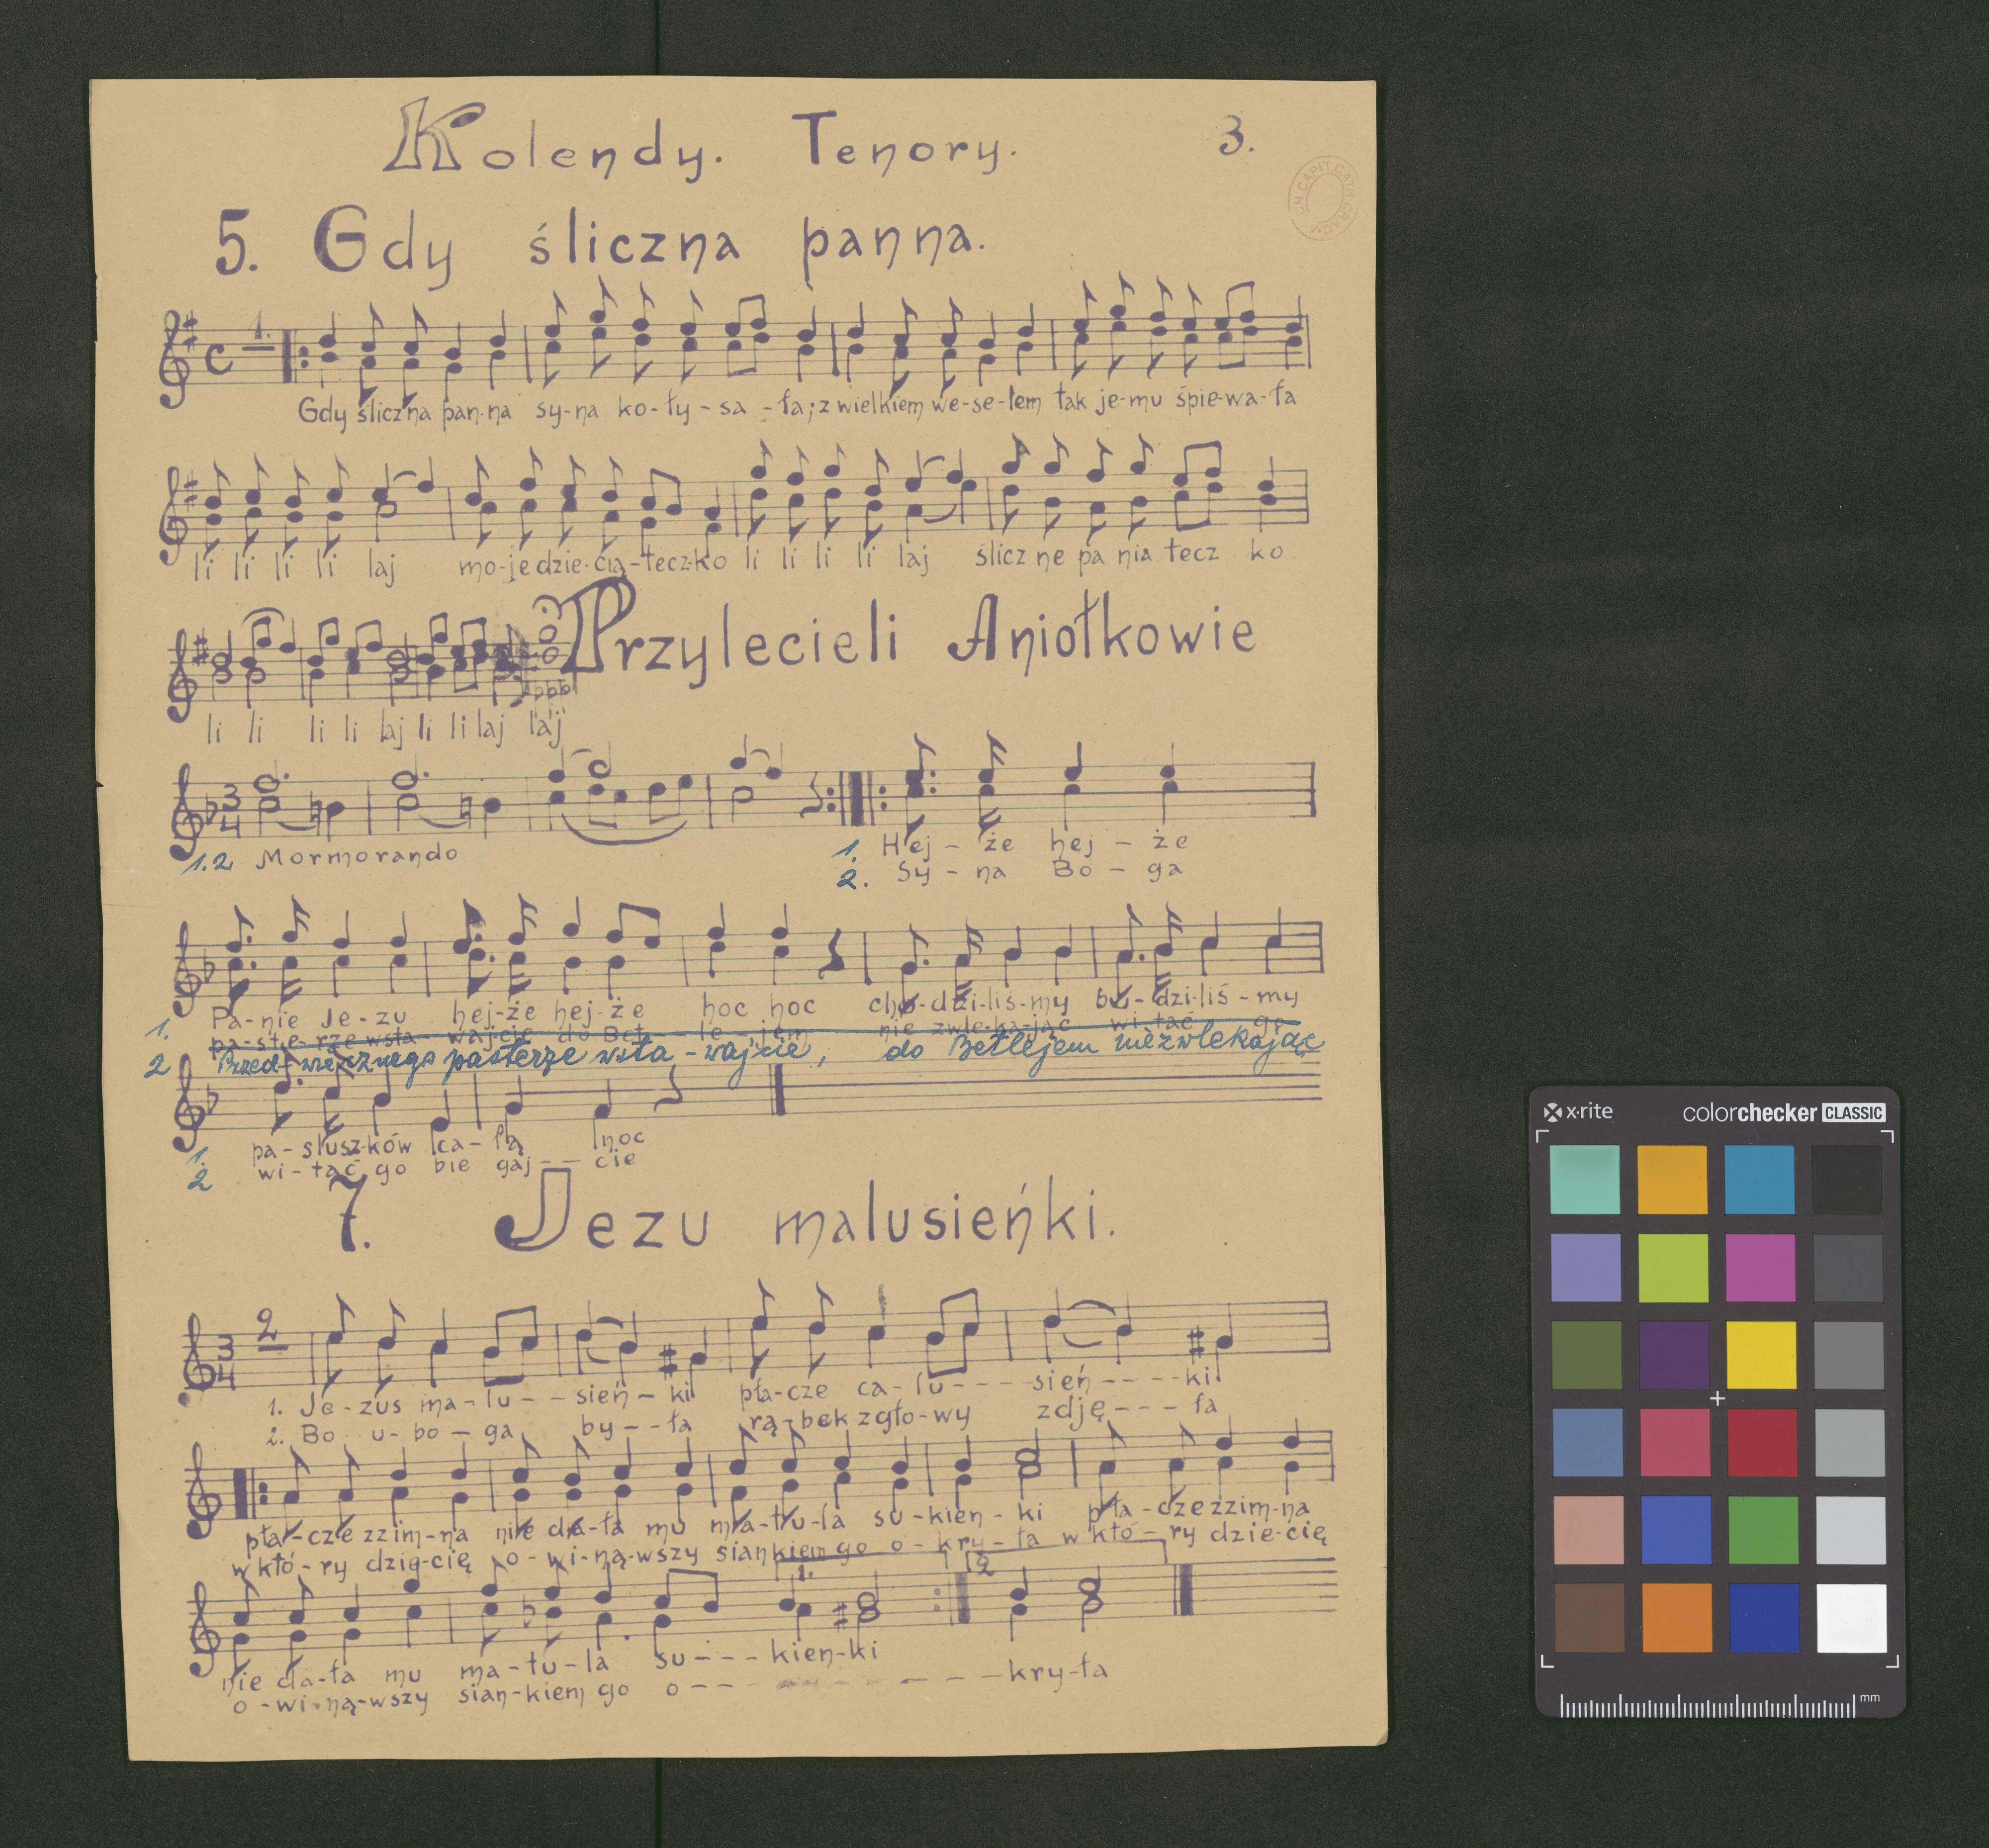 Kolendy. Tenory. 3.
5. Gdy śliczna panna.
1.
Gdy ślicz na pan-na sy-na ko-ły-sa-ła; z wielkiem we-se-łem tak je-mu śpie-wa-ła
li li li li laj mo-je dzie-cią-tecz-ko li li li li laj ślicz ne pa nia tecz ko
Przylecieli Aniołkowie
li li li li laj li li laj laj
3
4
1.2 Mormorando 1. Hej - że hej - że
2. Sy - na Bo - ga
1. Pa-nie Je-zu hej-że hej-że hoc hoc cho-dzi-liś-my bu-dzi-liś-my
pa-stie-rze wsta-waj-cie do Bet--le-jem nie zwle-ka-jąc wi-tać go
2 Przed-wiecznego pasterze wsta-wajcie, do Betlejem niezwlekając
1. pa-słusz-ków ca-łą noc
2 wi-tać go bie gaj-- cie
7. Jezu malusieńki.
2
3
4
1. Je-zus ma-lu---sień-ki pła-cze ca-lu----sień----ki
2. Bo u-bo-ga by--ła rą-bek z gło-wy zdję---ła
pła-cze z zim-na nie da-ła mu ma-tu-la su-kien-ki pła-cze z zim-na
w któ-ry dzie-cię o-wi-ną-wszy siankiem go o-kry-ła w któ-ry dzie-cię
1. 2
nie da-ła mu ma-tu-la su---kien-ki
o-wi-ną-wszy sian-kiem go o-- - - - - -kry-ła
x-rite colorchecker CLASSIC
mm